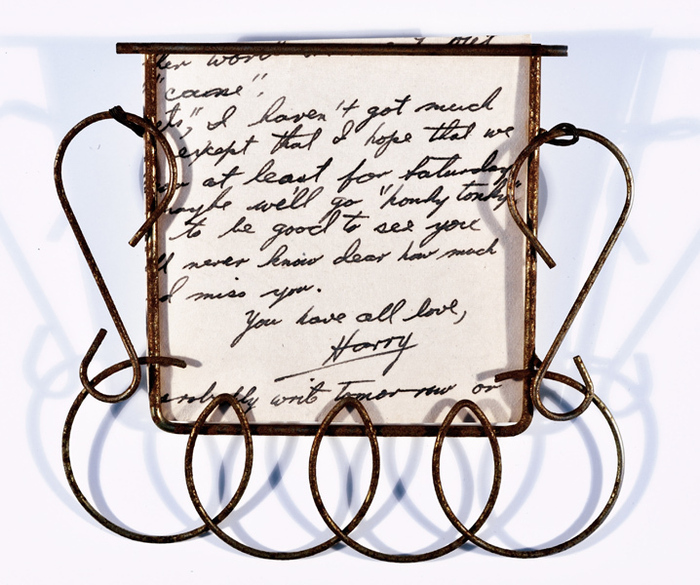 "cause".
I haven't got much
except that I hope that we
at least for Saturday
maybe we'll go "honky tonky"
to be good to see you
never know dear how much
I miss you.
You have all love,
Harry
writ tomorrow or